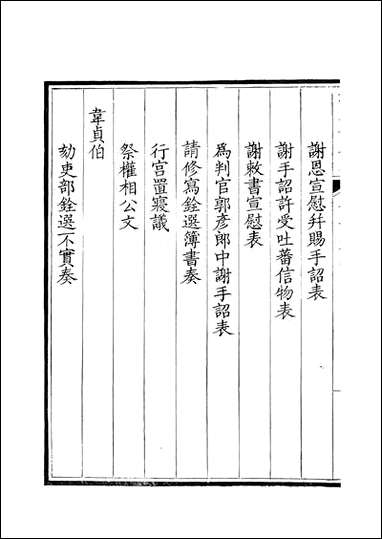 謝恩宣慰幷賜手詔表
謝手詔許受吐蕃信物表
謝敕書宣慰表
為判官郭彥郎中謝手詔表
請修寫銓選簿書奏
行宫置寢議
祭權相公文
韋貞伯
劾吏部銓選不實奏